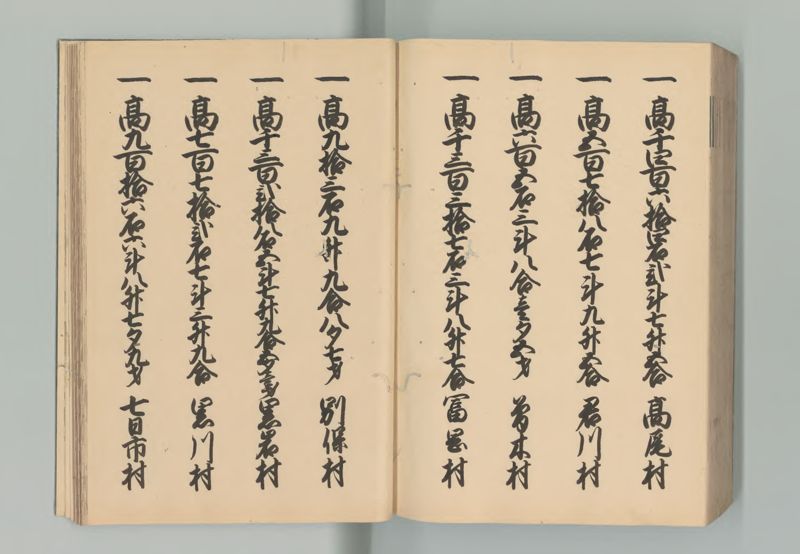 一 高千四百六拾四石弐斗七升五合 高尾村
一 高五百七拾八石七斗九升五合 君川村
一 高六百五石三斗八合壱夕五才 曽木村
一 高千三百三拾七石三斗八升七合 冨岡村
一 高九拾三石九升九合八夕七才 別保村
一 高千三百弐拾八石五斗七升九合五夕壱才 黒岩村
一 高七百七拾弐石七斗三升九合 黒川村
一 高九百拾六石六斗八升七夕九才 七日市村